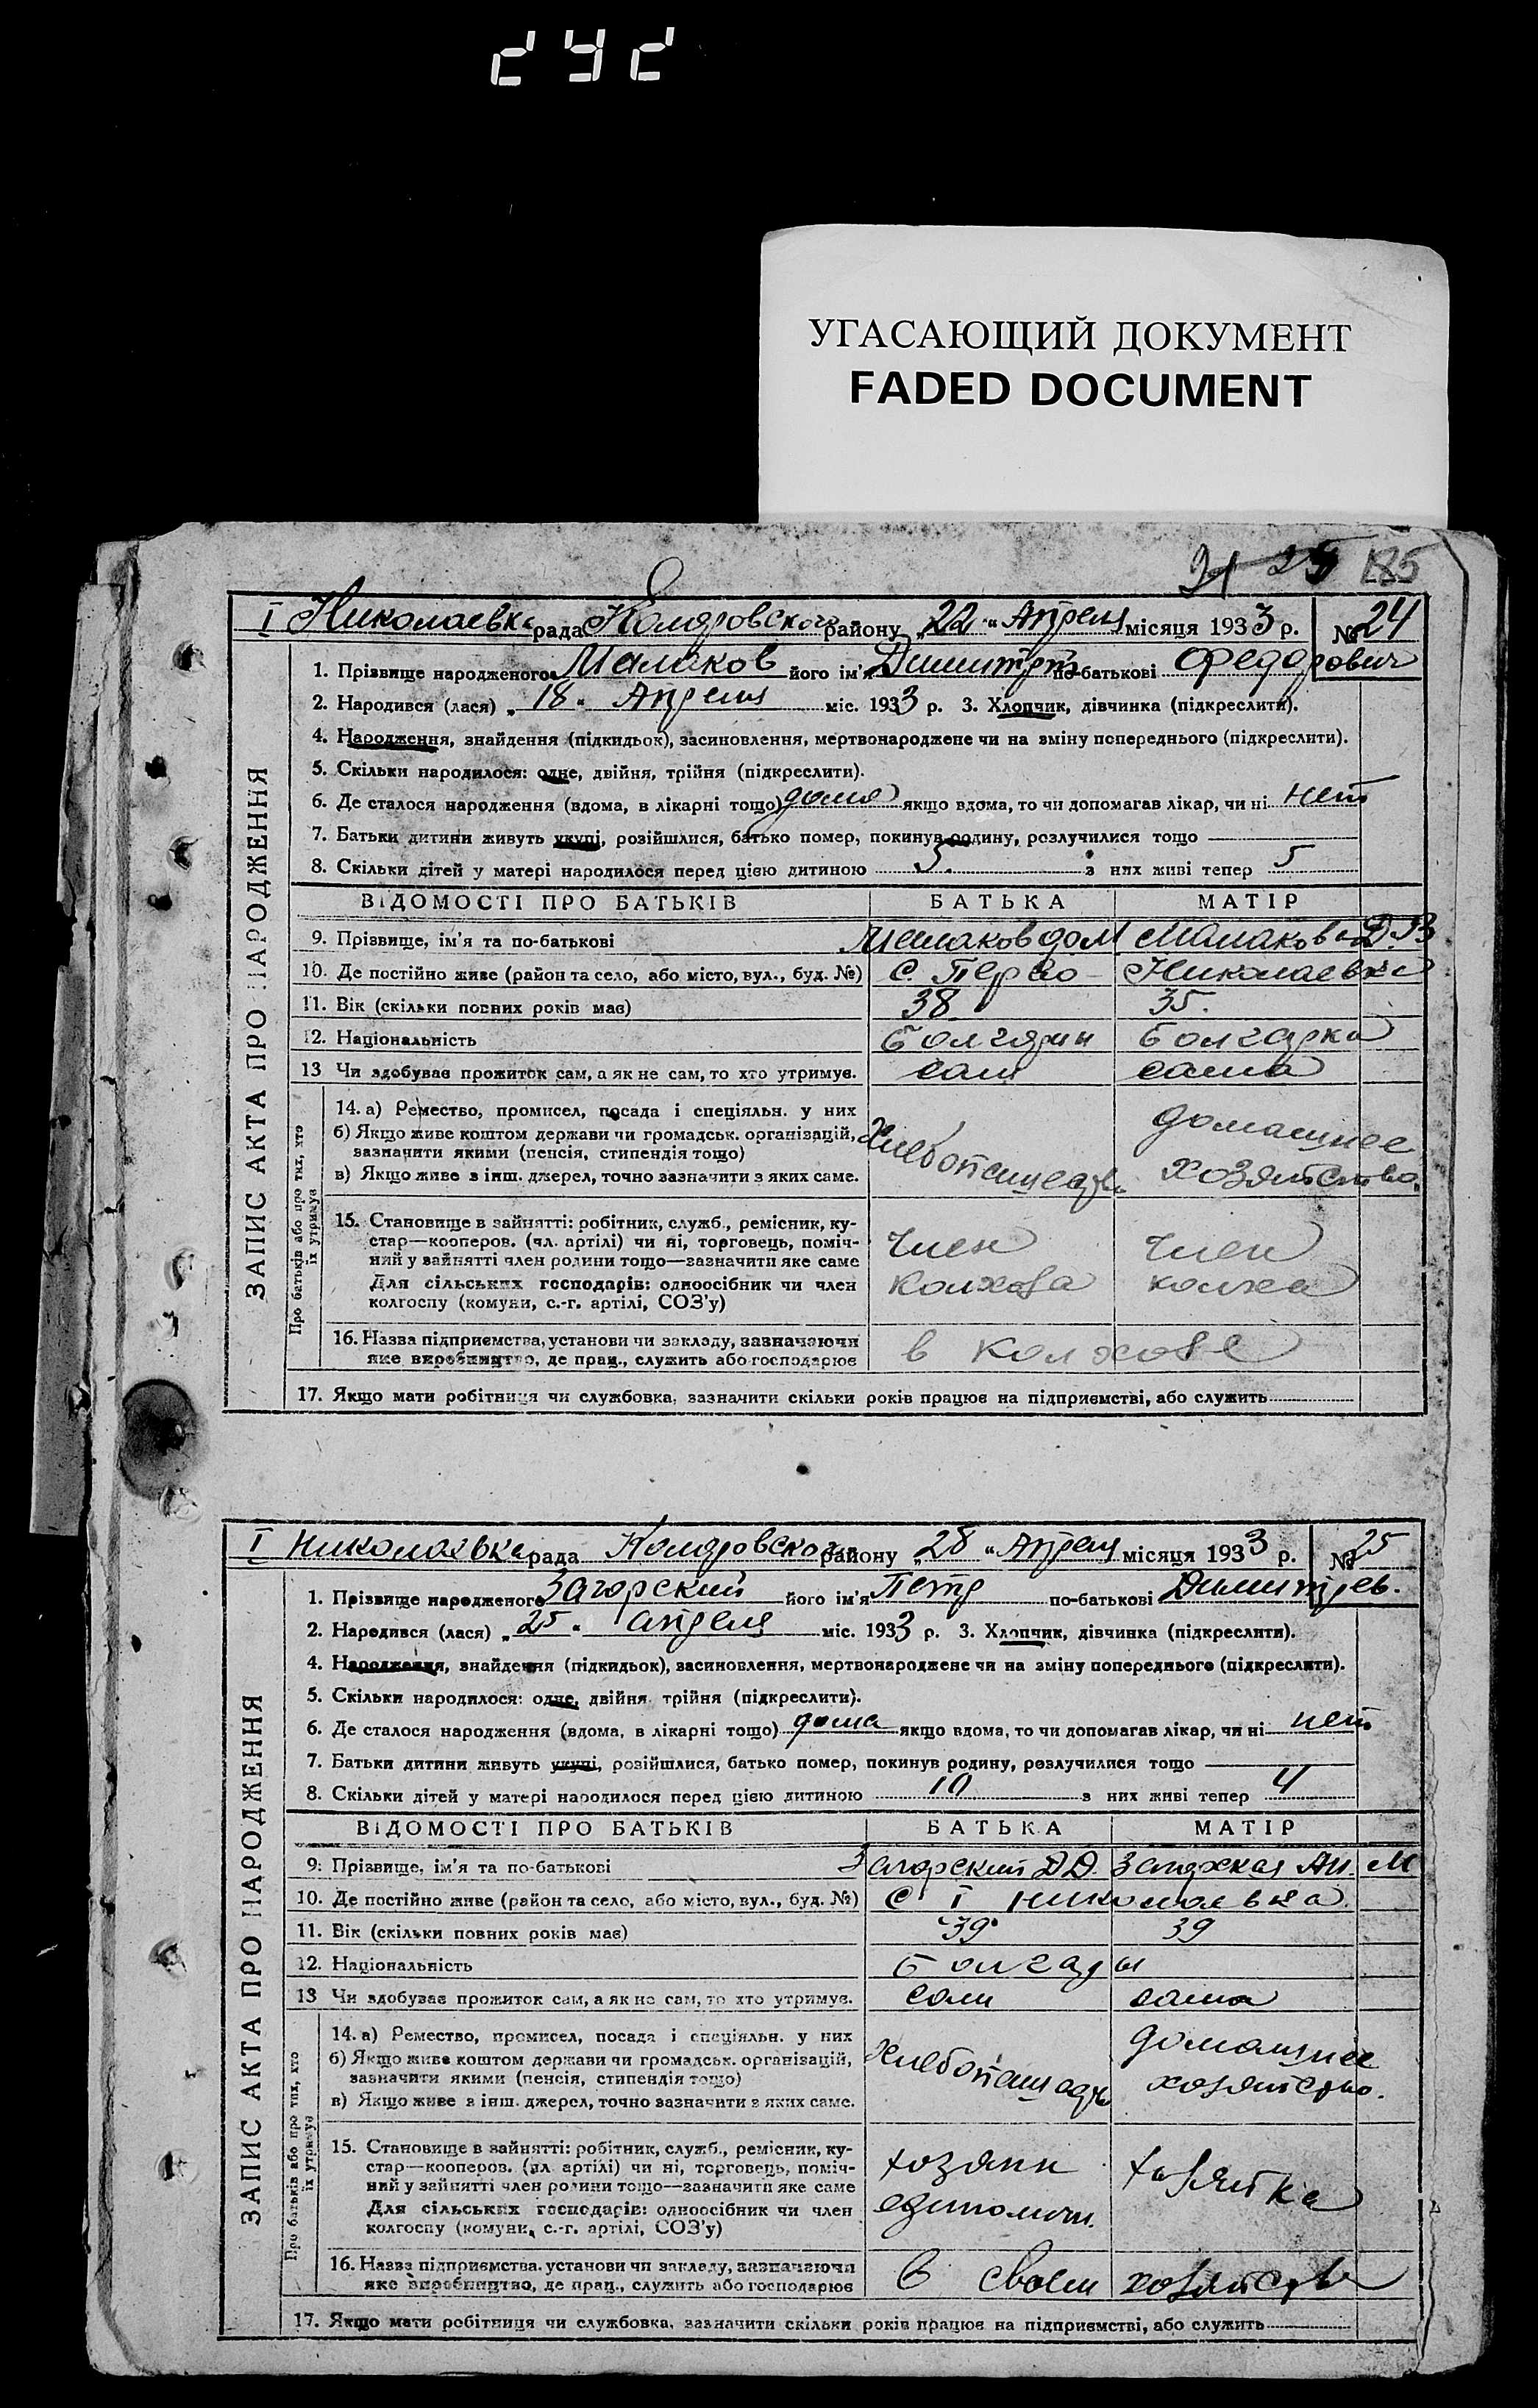 242
УГАСАЮЩИЙ ДОКУМЕНТ
FADED DOCUMENT
21 25 185
I Николаевка рада Коларовского району „22“ Апреля місяця 1933 р. № 24
ЗАПИС АКТА ПРО НАРОДЖЕННЯ
1. Прізвище народженого Малаков його ім'я Димитрт по-батькові Федорович
2. Народився (лася) „18“ Апреля міс. 1933 р. 3. Хлопчик, дівчинка (підкреслити).
4. Народження, знайдення (підкидьок), засиновлення, мертвонароджене чи на зміну попереднього (підкреслити).
5. Скільки народилося: одне, двійня, трійня (підкреслити).
6. Де сталося народження (вдома, в лікарні тощо) дома якщо вдома, то чи допомагав лікар, чи ні нет
7. Батьки дитини живуть укупі, розійшлися, батько помер, покинув родину, розлучилися тощо
8. Скільки дітей у матері народилося перед цією дитиною 5. з них живі тепер 5
ВІДОМОСТІ ПРО БАТЬКІВ БАТЬКА МАТІР
9. Прізвище, ім'я та по-батькові Малаков Малакова Д.В
10. Де постійно живе (район та село, або місто, вул., буд. №) с. Перво - Николаевка
11. Вік (скільки повних років має) 38 35.
12. Національність болгарин болгарка
13 Чи здобуває прожиток сам, а як не сам, то хто утримує. сам сама
Про батьків або про тих, хто їх утримує
14. а) Ремество, промисел, посада і спеціяльн. у них
б) Якщо живе коштом держави чи громадськ. організацій,
зазначити якими (пенсія, стипендія тощо)
в) Якщо живе з інш. джерел, точно зазначити з яких саме.
Хлебопашество домашнее
хозяйство.
15. Становище в зайнятті: робітник, служб., ремісник, ку-
стар—кооперов. (чл. артілі) чи ні, торговець, поміч-
ний у зайнятті член родини тощо—зазначити яке саме
Для сільських господарів: одноосібник чи член
колгоспу (комуни, с.-г. артілі, СОЗ'у)
член член
колхоза колхоа
16. Назва підприємства, установи чи закладу, зазначаючи
яке виробництво, де прац., служить або господарює
в колхозе
17. Якщо мати робітниця чи службовка, зазначити скільки років працює на підприємстві, або служить
I Николаевка рада Коларовского району „28“ Апреля місяця 1933 р. № 25
ЗАПИС АКТА ПРО НАРОДЖЕННЯ
1. Прізвище народженого Загорский його ім'я Петр по-батькові Димитриев.
2. Народився (лася) „25“ апреля міс. 1933 р. 3. Хлопчик, дівчинка (підкреслити).
4. Народження, знайдення (підкидьок), засиновлення, мертвонароджене чи на зміну попереднього (підкреслити).
5. Скільки народилося: одне, двійня трійня (підкреслити).
6. Де сталося народження (вдома, в лікарні тощо) дома якщо вдома, то чи допомагав лікар, чи ні нет
7. Батьки дитини живуть укупі, розійшлися, батько помер, покинув родину, розлучилися тощо
8. Скільки дітей у матері народилося перед цією дитиною 10 з них живі тепер 4
ВІДОМОСТІ ПРО БАТЬКІВ БАТЬКА МАТІР
9. Прізвище, ім'я та по-батькові Загорский Д Д. Загорская Ан. М
10. Де постійно живе (район та село, або місто, вул., буд. №) с I Николаевка.
11. Вік (скільки повних років має) 39 39
12. Національність болгары
13 Чи здобуває прожиток сам, а як не сам, то хто утримує. сам сама
Про батьків або про тих, хто їх утримує
14. а) Ремество, промисел, посада і спеціяльн. у них
б) Якщо живе коштом держави чи громадськ. організацій,
зазначити якими (пенсія, стипендія тощо)
в) Якщо живе з інш. джерел, точно зазначити з яких саме.
Хлебопашество домашнее
хозяйство.
15. Становище в зайнятті: робітник, служб., ремісник, ку-
стар—кооперов. (чл артілі) чи ні, торговець, поміч-
ний у зайнятті член родини тощо—зазначити яке саме
Для сільських господарів: одноосібник чи член
колгоспу (комуни, с.-г. артілі, СОЗ'у)
хозяин хозяйка
единоличн.
16. Назва підприємства. установи чи закладу, зазначаючи
яке виробництво, де прац., служить або господарює
в своем хозяйстве
17. Якщо мати робітниця чи службовка, зазначити скільки років працює на підприємстві, або служить